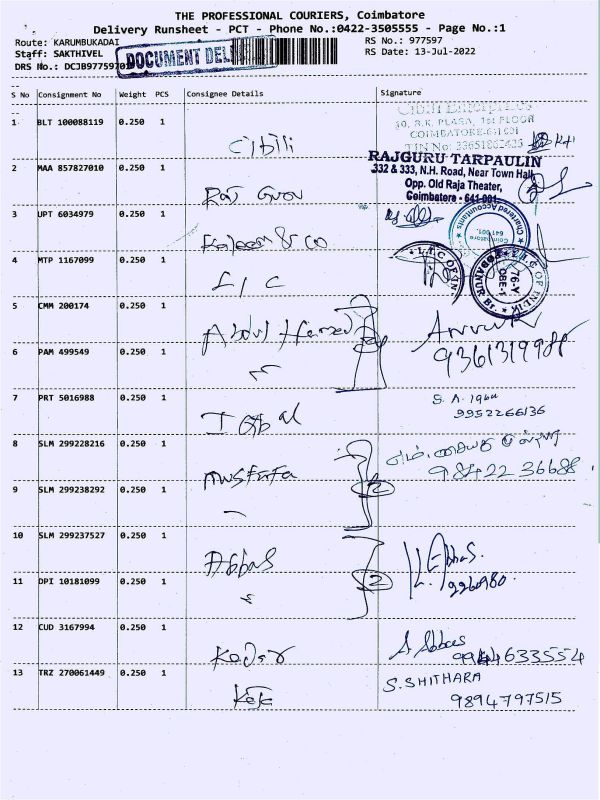 THE PROFESSIONAL COURIERS, Coimbatore
Delivery Runsheet - PCT - Phone No.:0422-3505555 - Page No.:1
Route: KARUMBUKADAI RS No.: 977597
Staff: SAKTHIVEL RS Date: 13-Jul-2022
DRS No.: DCJB977597 DOCUMENT DEL
S No Consignment No Weight PCS Consignee Details Signature
Cibili Enterprises
30, R.K. PLAZA, 1st FLOOR
1 BLT 100088119 0.250 1 Cibili
COIMBATORE-641 001
TIN No: 33651862425
RAJGURU TARPAULIN
2 MAA 857827010 0.250 1 Raj Guru
332 & 333, N.H. Road, Near Town Hall,
Opp. Old Raja Theater,
Coimbatore - 641 001
3 UPT 6034979 0.250 1 Kaleem & co
Chartered Accountants
Coimbatore
641 001
4 MTP 1167099 0.250 1 LIC
L.I.C OF IN
L.I.C OF INDIA
76-Y
5 CMM 200174 0.250 1 Abdul Hameed
6 PAM 499549 0.250 1 9361319988
7 PRT 5016988 0.250 1 Iqbal S. A. Iqbal
9952266136
8 SLM 299228216 0.250 1 Mustafa
98422 36688
9 SLM 299238292 0.250 1 2
10 SLM 299237527 0.250 1 Abbas
11 DPI 10181099 0.250 1 2
12 CUD 3167994 0.250 1 Kader A Abbas
13 TRZ 270061449 0.250 1 S. SHITHARA
9894797515